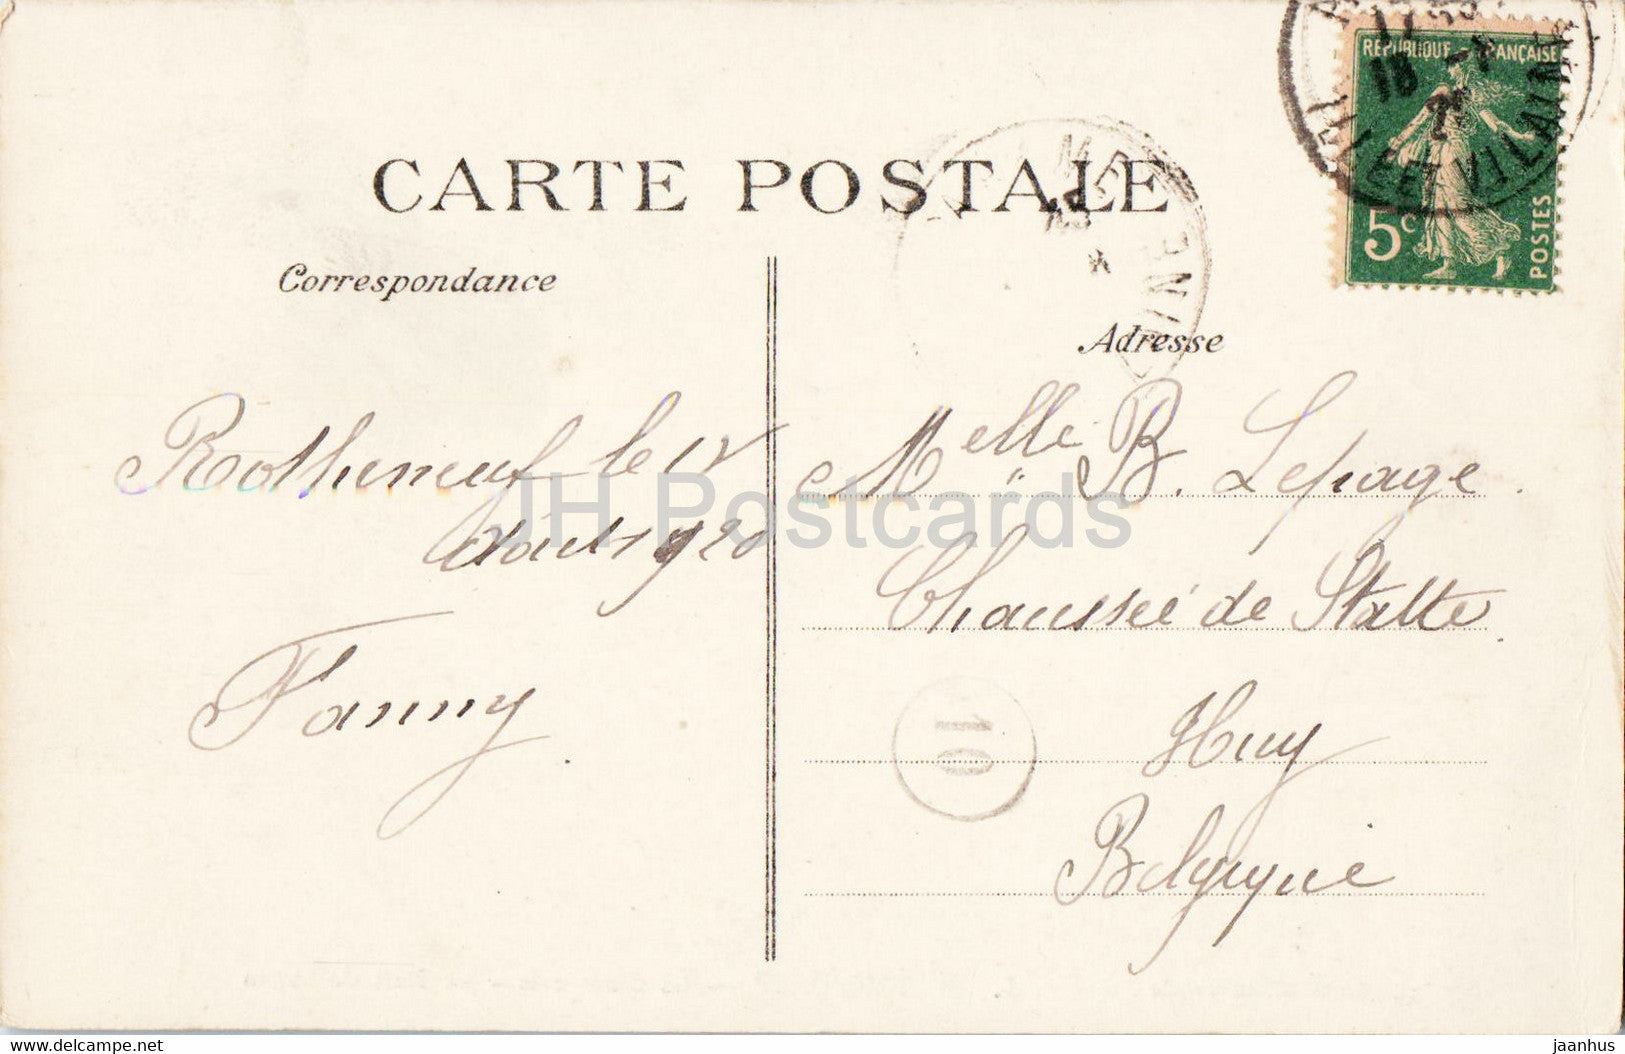 CARTE POSTALE
Correspondance
Adresse
RÉPUBLIQUE FRANÇAISE
5c
POSTES
ILLE-ET-VILAINE
Rotheneuf le 12
août 1920
Fanny
Melle B. Lepage
Chaussée de Statte
Huy
Belgique
10
JH Postcards
www.delcampe.net
jaanhus